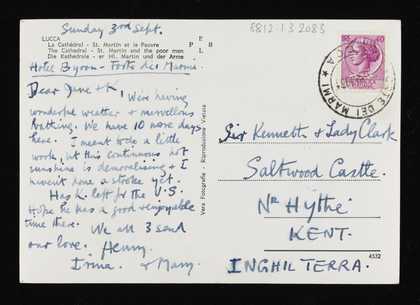 Sunday 3rd Sept.
8812.1.3.2083
LUCCA
La Cathédral - St. Martin et le Pauvre
The Cathedral - St. Martin and the poor men
Die Kathedrale - er Hl. Martin und der Arme
E
P B
L
Hotel Byron - Forte dei Marmi.
Dear Jane + K, We're having
wonderful weather + marvellous
bathing. We have 10 more days
here. I meant to do a little
work, but this continuous hot
sunshine is demoralising & I
haven't done a stroke yet.
Has K. left for the U.S.
Hope he has a good & enjoyable
time there. We all 3 send
our love. Henry.
Irina. & Mary.
Vera Fotografia - Riproduzione Vietata
FORTE DEI MARMI
Sir Kenneth & Lady Clark
Saltwood Castle.
Nr Hythe
KENT.
INGHILTERRA.
4532